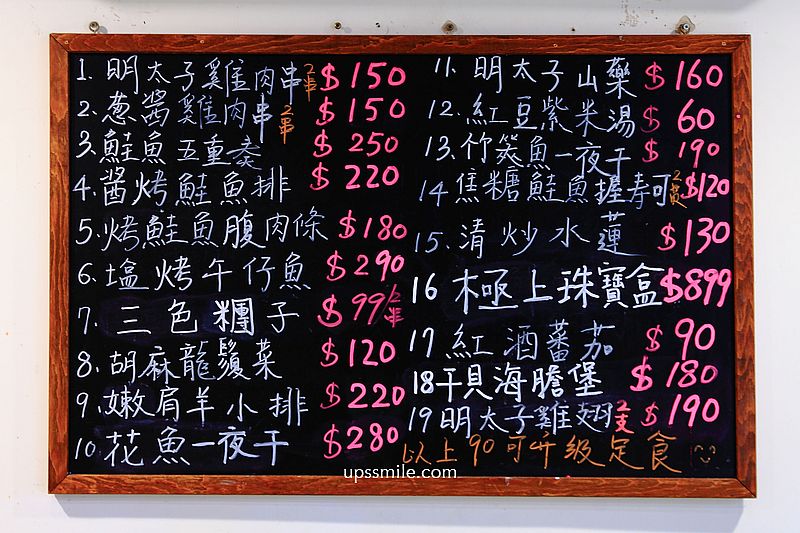 1. 明太子雞肉串 2串 $150
2. 蔥醬雞肉串 2串 $150
3. 鮭魚五重奏 $250
4. 醬烤鮭魚排 $220
5. 烤鮭魚腹肉條 $180
6. 塩烤午仔魚 $290
7. 三色糰子 $99/2串
8. 胡麻龍鬚菜 $120
9. 嫩肩羊小排 $220
10. 花魚一夜干 $280
11. 明太子山藥 $160
12. 紅豆紫米湯 $60
13. 竹筴魚一夜干 $190
14 焦糖鮭魚握寿司 2貫 $120
15. 清炒水蓮 $130
16 極上珠寶盒 $899
17 紅酒蕃茄 $90
18 干貝海膽堡 $180
19 明太子雞翅 2支 $190
以上90可升級定食
upssmile.com